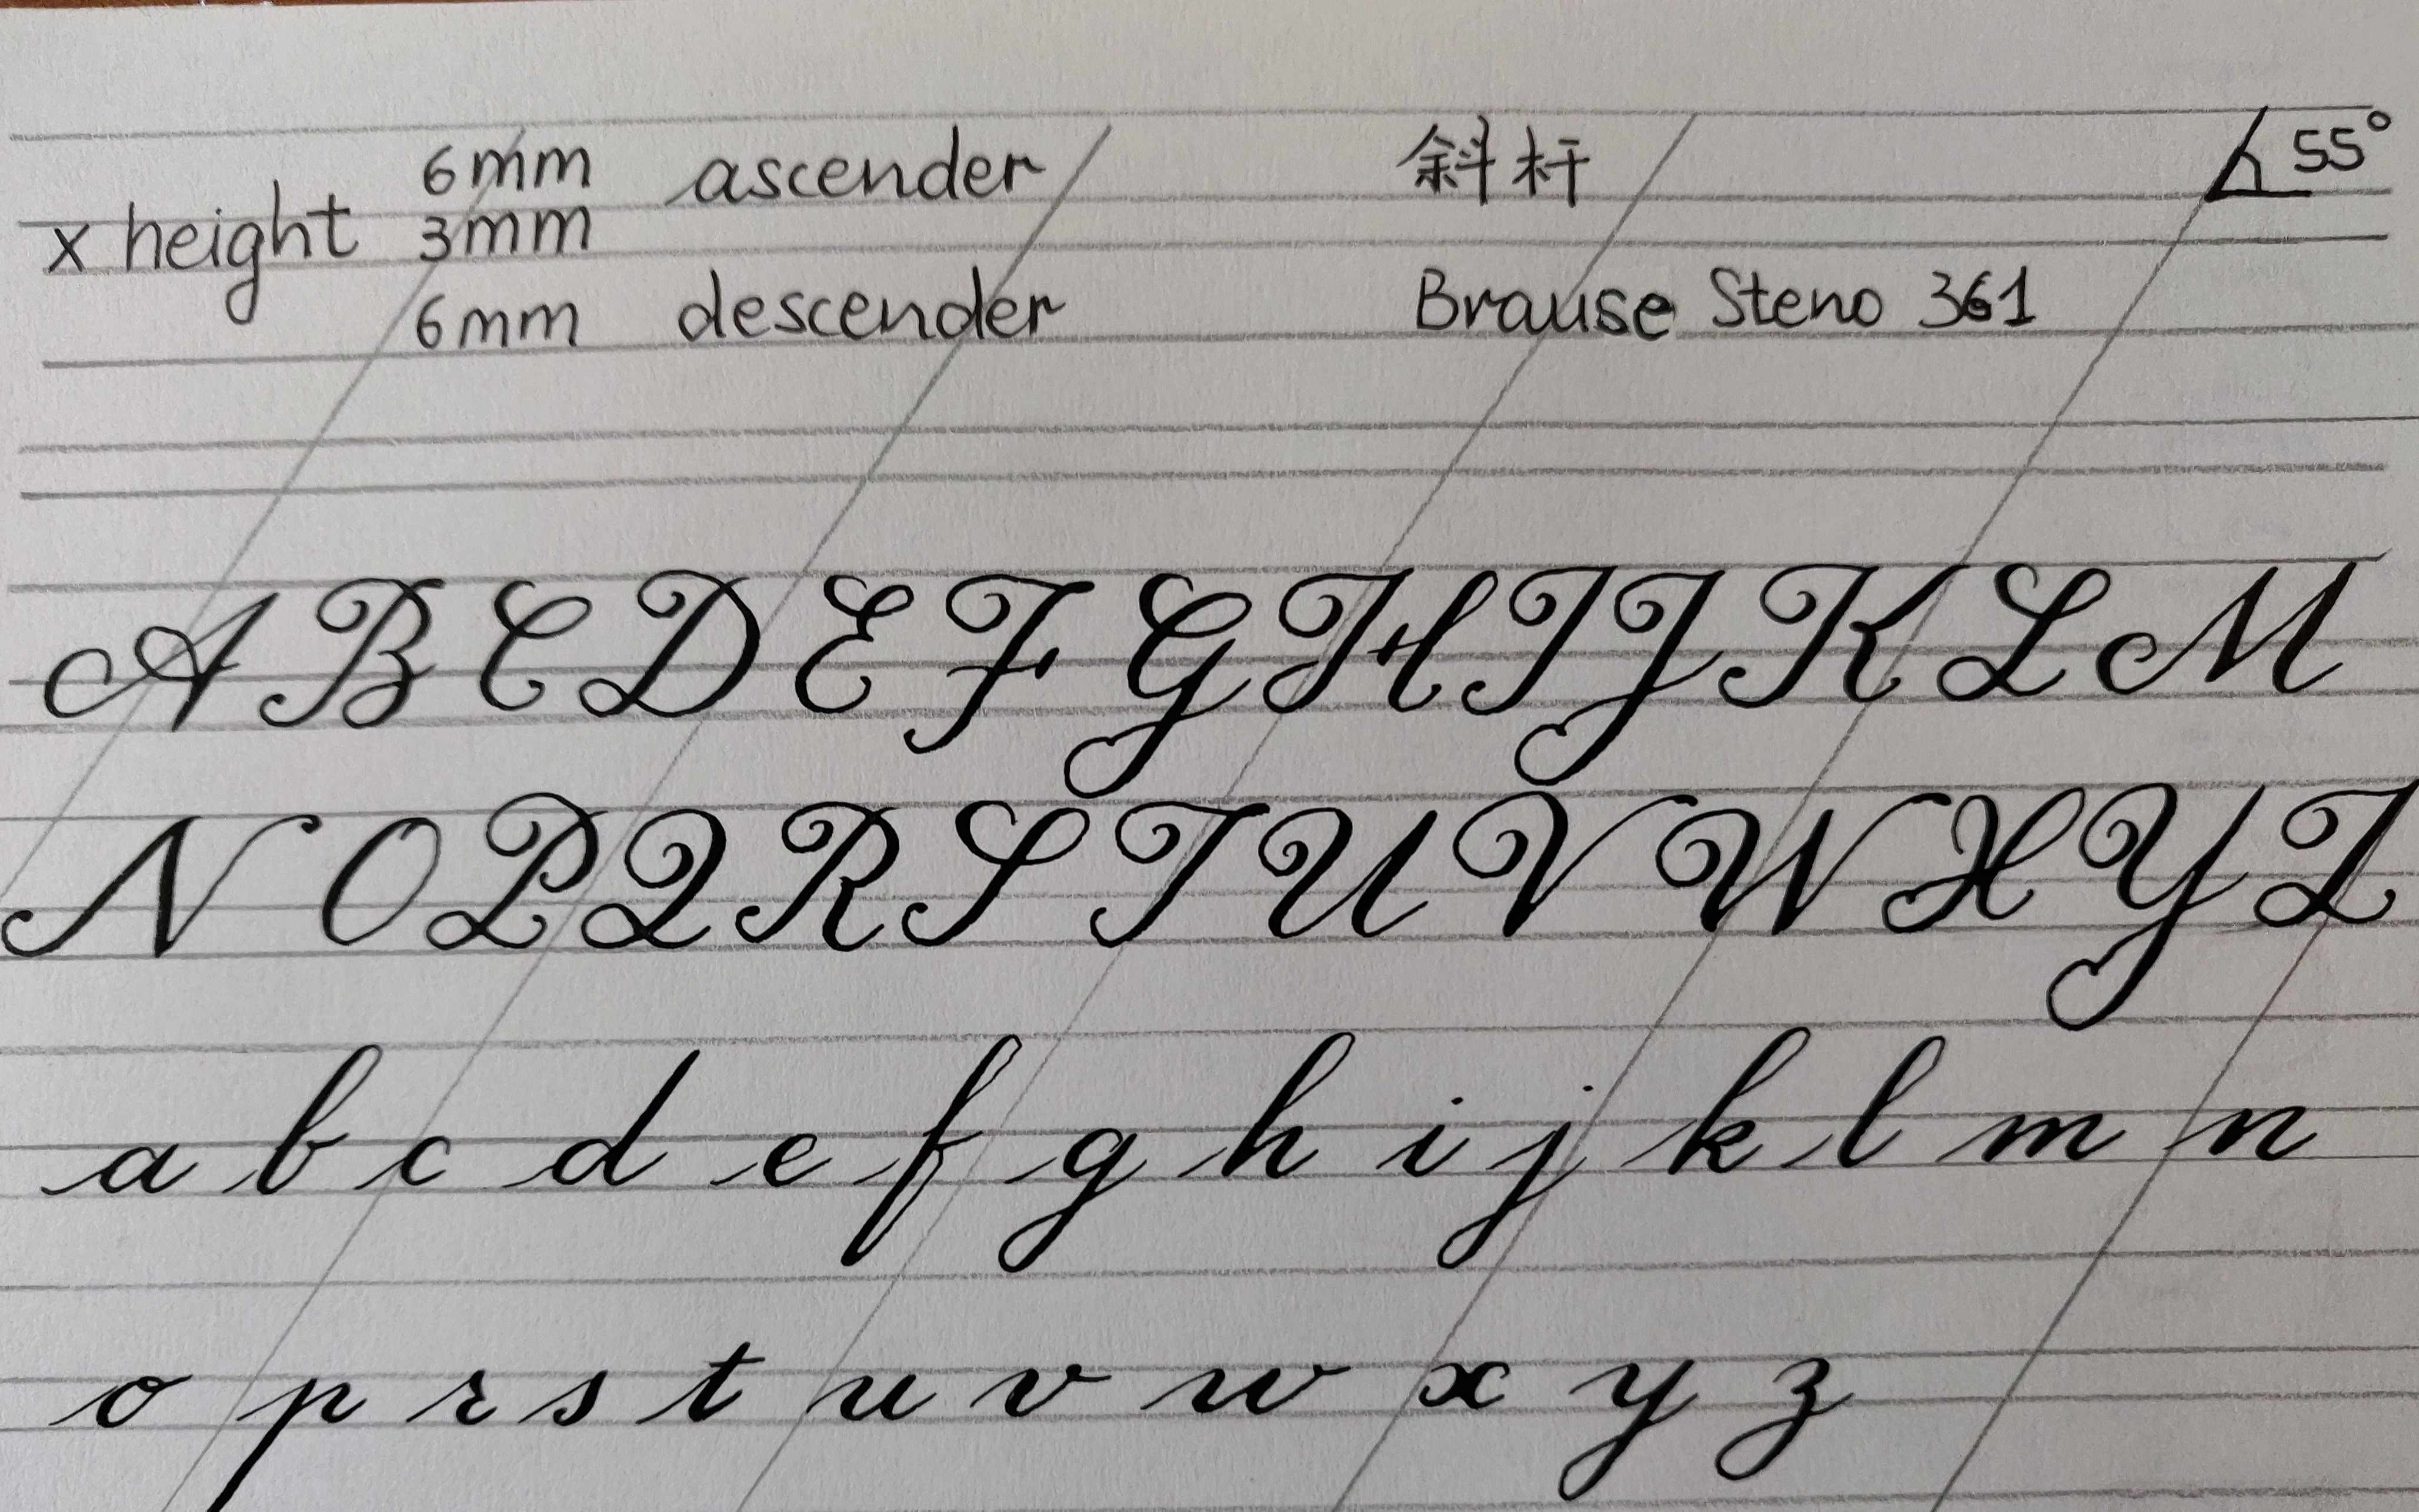 6mm ascender 斜杆 55°
x height 3mm
6mm descender Brause Steno 361
A B C D E F G H I J K L M
N O P Q R S T U V W X Y Z
a b c d e f g h i j k l m n
o p r s t u v w x y z